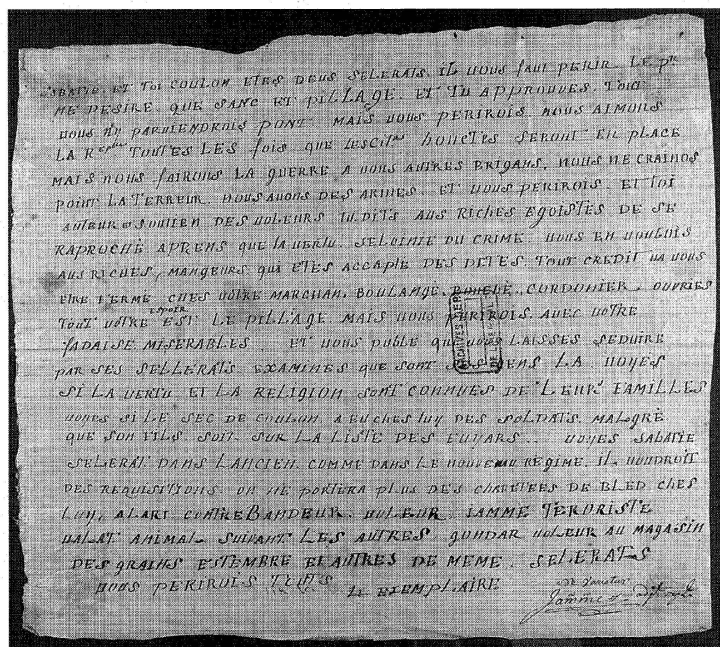 SABATIE, ET TOI COULON ETES DEUS SELERATS. IL VOUS faut PERIR. LE Pr
ME DESIRE, QUE SANG ET PILLAGE, ET TU APPROUVES. TOUT
VOUS PARVIENDROIS PONT MAIS VOUS PERIROIS. NOUS AIMONS
LA Rque TOUTES LES FOIS QUE LES CITns HONETES SERONT EN PLACE
MAIS NOUS FAIRONS LA GUERRE A VOUS AUTRES BRIGANS, NOUS NE CRAINDS
POINT LA TERREUR. NOUS AVONS DES ARMES. ET VOUS PERIROIS. ET TOI
AUTEUR SOUTIEN DES VOLEURS TU DITS AUS RICHES EGOISTES DE SE
RAPROCHE APRENS QUE LA VERTU SELOINIE DU CRIME VOUS EN VOULOIS
AUS RICHES, MANGEURS QUI ETES ACCAPLE DES DETES. TOUT CREDIT VA VOUS
ETRE FERME CHES VOTRE MARCHAN, BOULANGE, CORDONIER, OUVRIES
TOUT VOTRE ESPOIR EST LE PILLAGE MAIS VOUS PERIROIS AVEC VOTRE
FADAISE MISERABLES ET VOUS PUBLE QUE VOUS LAISSES SEDUIRE
PAR SES SELLERATS. EXAMINES QUE SONT SES GENS LA VOYES
SI LA VERTU ET LA RELIGION SONT CONNUES DE LEURS FAMILLES
VOYES SI LE SEC DE COULON A EU CHES LUY DES SOLDATS MALGRE
QUE SON FILS SOIT SUR LA LISTE DES FUYARS.. VOYES SABATIE
SELERAT DANS LANCIEN COMME DANS LE NOUVEAU REGIME. IL VOUDROIT
DES REQUISITIONS ON NE PORTERA PLUS DES CHARETEES DE BLED CHES
LUY, ALARI CONTREBANDEUR VOLEUR IAMME TERORISTE
VALAT ANIMAL SUIVANT LES AUTRES GUNDAR VOLEUR AU MAGASIN
DES GRAINS ESTEMBRE ET AUTRES DE MEME SELERATS
VOUS PERIROIS TOUTS
14 EXEMPLAIRE
ne varietur
Jamme
ARCHIVES